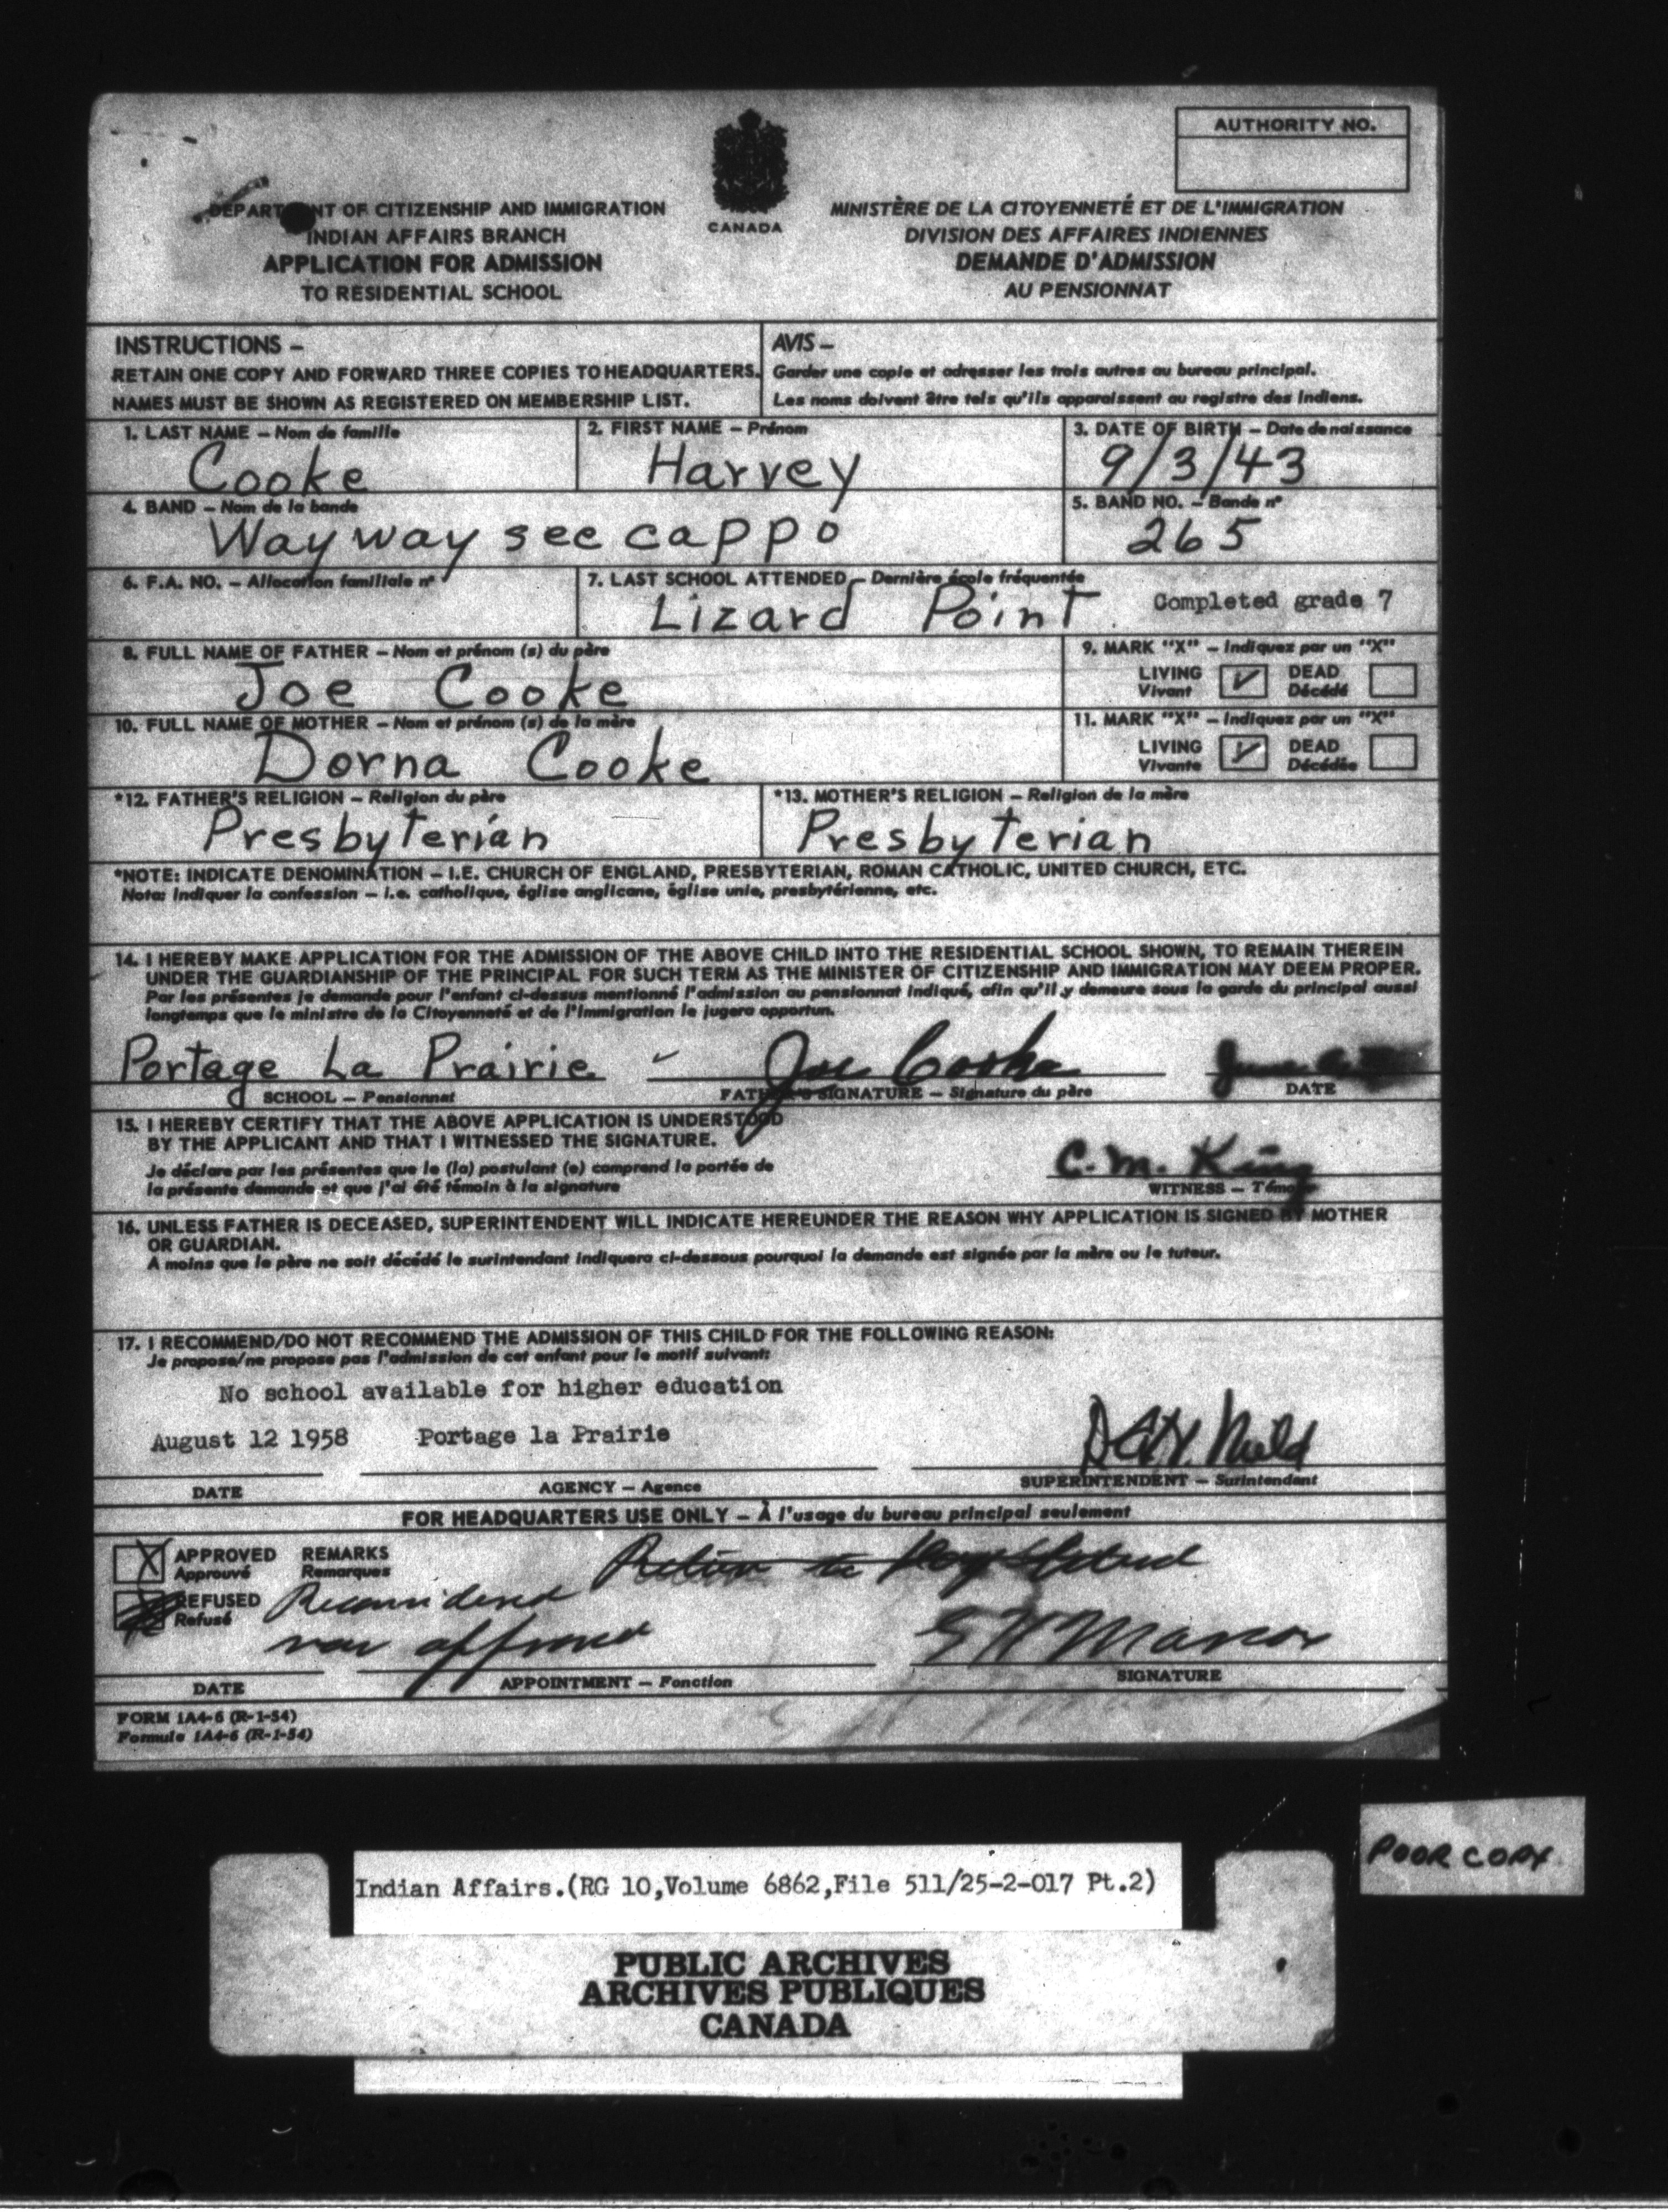 AUTHORITY NO.
CANADA
DEPARTMENT OF CITIZENSHIP AND IMMIGRATION
INDIAN AFFAIRS BRANCH
APPLICATION FOR ADMISSION
TO RESIDENTIAL SCHOOL
MINISTÈRE DE LA CITOYENNETÉ ET DE L'IMMIGRATION
DIVISION DES AFFAIRES INDIENNES
DEMANDE D'ADMISSION
AU PENSIONNAT
INSTRUCTIONS –
RETAIN ONE COPY AND FORWARD THREE COPIES TO HEADQUARTERS.
NAMES MUST BE SHOWN AS REGISTERED ON MEMBERSHIP LIST.
AVIS –
Garder une copie et adresser les trois autres au bureau principal.
Les noms doivent être tels qu'ils apparaissent au registre des Indiens.
1. LAST NAME – Nom de famille
Cooke
2. FIRST NAME – Prénom
Harvey
3. DATE OF BIRTH – Date de naissance
9/3/43
4. BAND – Nom de la bande
Waywayseecappo
5. BAND NO. – Bande nº
265
6. F.A. NO. – Allocation familiale nº
7. LAST SCHOOL ATTENDED – Dernière école fréquentée
Lizard Point. Completed grade 7
8. FULL NAME OF FATHER – Nom et prénom (s) du père
Joe Cooke
9. MARK "X" – Indiquez par un "X"
LIVING DEAD
Vivant Décédé
10. FULL NAME OF MOTHER – Nom et prénom (s) de la mère
Dorna Cooke
11. MARK "X" – Indiquez par un "X"
LIVING DEAD
Vivante Décédée
*12. FATHER'S RELIGION – Religion du père
Presbyterian
*13. MOTHER'S RELIGION – Religion de la mère
Presbyterian
*NOTE: INDICATE DENOMINATION – I.E. CHURCH OF ENGLAND, PRESBYTERIAN, ROMAN CATHOLIC, UNITED CHURCH, ETC.
Nota: Indiquer la confession – i.e. catholique, église anglicane, église unie, presbytérienne, etc.
14. I HEREBY MAKE APPLICATION FOR THE ADMISSION OF THE ABOVE CHILD INTO THE RESIDENTIAL SCHOOL SHOWN, TO REMAIN THEREIN
UNDER THE GUARDIANSHIP OF THE PRINCIPAL FOR SUCH TERM AS THE MINISTER OF CITIZENSHIP AND IMMIGRATION MAY DEEM PROPER.
Par les présentes je demande pour l'enfant ci-dessus mentionné l'admission au pensionnat indiqué, afin qu'il y demeure sous la garde du principal aussi
longtemps que le ministre de la Citoyenneté et de l'Immigration le jugera opportun.
Portage La Prairie – Joe Cooke June
SCHOOL – Pensionnat FATHER'S SIGNATURE – Signature du père DATE
15. I HEREBY CERTIFY THAT THE ABOVE APPLICATION IS UNDERSTOOD
BY THE APPLICANT AND THAT I WITNESSED THE SIGNATURE.
Je déclare par les présentes que le (la) postulant (e) comprend la portée de
la présente demande et que j'ai été témoin à la signature
C. M. King
WITNESS – Témoin
16. UNLESS FATHER IS DECEASED, SUPERINTENDENT WILL INDICATE HEREUNDER THE REASON WHY APPLICATION IS SIGNED BY MOTHER
OR GUARDIAN.
A moins que le père ne soit décédé le surintendant indiquera ci-dessous pourquoi la demande est signée par la mère ou le tuteur.
17. I RECOMMEND/DO NOT RECOMMEND THE ADMISSION OF THIS CHILD FOR THE FOLLOWING REASON:
Je propose/ne propose pas l'admission de cet enfant pour le motif suivant:
No school available for higher education
August 12 1958 Portage la Prairie
DATE AGENCY – Agence SUPERINTENDENT – Surintendant
FOR HEADQUARTERS USE ONLY – À l'usage du bureau principal seulement
X APPROVED REMARKS
Approuvé Remarques
REFUSED
Refusé
Reconsidered
now approved
DATE APPOINTMENT – Fonction SIGNATURE
FORM 1A4-6 (R-1-54)
Formule 1A4-6 (R-1-54)
POOR COPY
Indian Affairs.(RG 10,Volume 6862,File 511/25-2-017 Pt.2)
PUBLIC ARCHIVES
ARCHIVES PUBLIQUES
CANADA